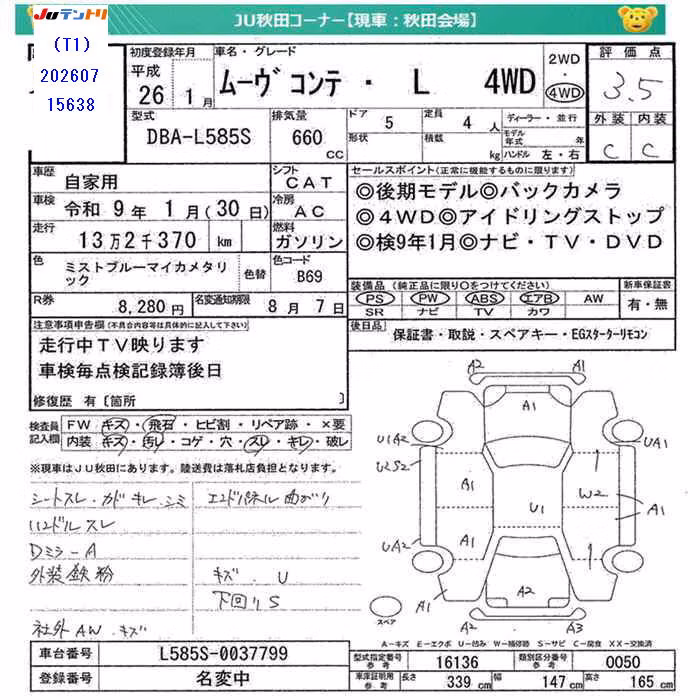 JUテントリ
JU秋田コーナー【現車：秋田会場】
(T1)
202607
15638
初度登録年月
平成
26 1月
車名・グレード
ムーヴ コンテ ・ L 4WD
2WD
・
4WD
評価点
3.5
外装 内装
C C
型式
DBA-L585S
排気量
660
CC
ドア 5
形状
定員 4 人
積載 kg
ディーラー・並行
モデル年式 年
ハンドル 左・右
車歴 自家用
シフト CAT
車検 令和 9年 1月(30日)
冷房 AC
走行 13万2千370 km
燃料 ガソリン
色 ミストブルーマイカメタリック
色替
色コード B69
R券 8,280円
名変通知期限 8月 7日
セールスポイント(正常に機能するものに限ります)
◎後期モデル◎バックカメラ
◎4WD◎アイドリングストップ
◎検9年1月◎ナビ・TV・DVD
装備品 (純正品に限り○をつけてください)
PS PW ABS エアB AW
SR ナビ TV カワ
新車保証書
有・無
後日品
保証書・取説・スペアキー・EGスターターリモコン
注意事項申告欄(不具合内容等は具体的に記入して下さい)
走行中TV映ります
車検毎点検記録簿後日
修復歴 有〔箇所 〕
検査員記入欄
FW キズ・飛石・ヒビ割・リペア跡・×要
内装 キズ・汚レ・コゲ・穴・スレ・キレ・破レ
※現車はJU秋田にあります。陸送費は落札店負担となります。
シートスレ・カドキレ・シミ
ハンドルスレ
Dミラ-A
外装鉄粉
社外AW.キズ
エンドパネル曲がり
キズ.U
下回りS
A2 A1
A1
U1A2
U2S2
UA1
A1
W2
A1
U1
UA2
A1
A2
A1
A2 A3
スペア
A-キズ E-エクボ U-凹み W-補修跡 S-サビ C-腐食 XX-交換済
車台番号 L585S-0037799
登録番号 名変中
型式指定番号 参考 16136
類別区分番号 参考 0050
車庫証明用 参考 長さ 339 cm 幅 147 cm 高さ 165 cm